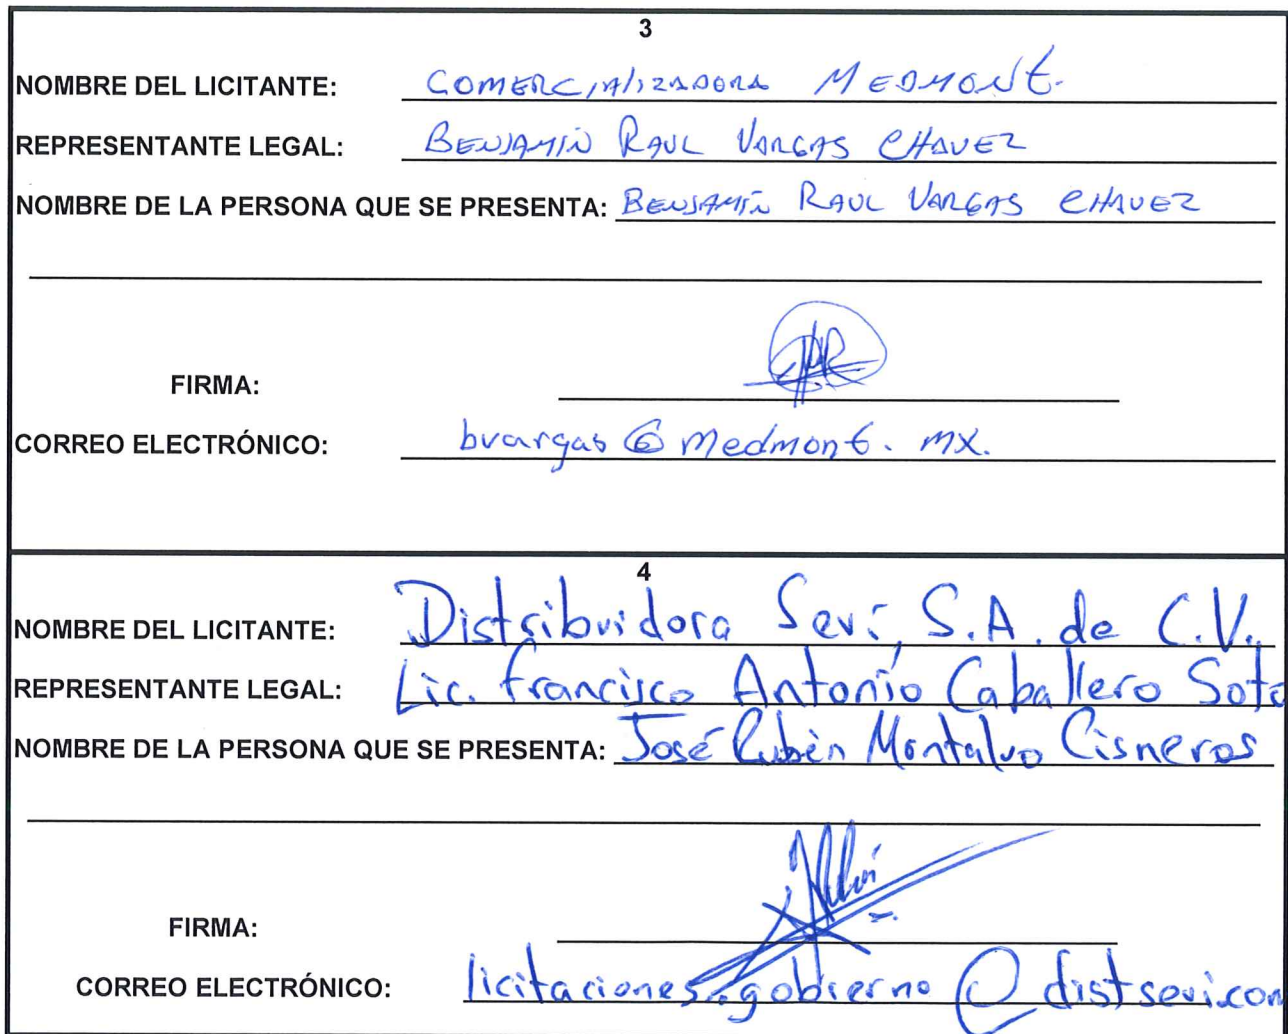 3
NOMBRE DEL LICITANTE: COMERCIALIZADORA MEDMONT.
REPRESENTANTE LEGAL: BENJAMÍN RAUL VARGAS CHAVEZ
NOMBRE DE LA PERSONA QUE SE PRESENTA: BENJAMÍN RAUL VARGAS CHAVEZ
FIRMA:
CORREO ELECTRÓNICO: bvargas@medmont.mx.
4
NOMBRE DEL LICITANTE: Distribuidora Sevi, S.A. de C.V.,
REPRESENTANTE LEGAL: Lic. Francisco Antonio Caballero Soto
NOMBRE DE LA PERSONA QUE SE PRESENTA: José Rubén Montalvo Cisneros
FIRMA:
CORREO ELECTRÓNICO: licitaciones.gobierno@distsevi.com